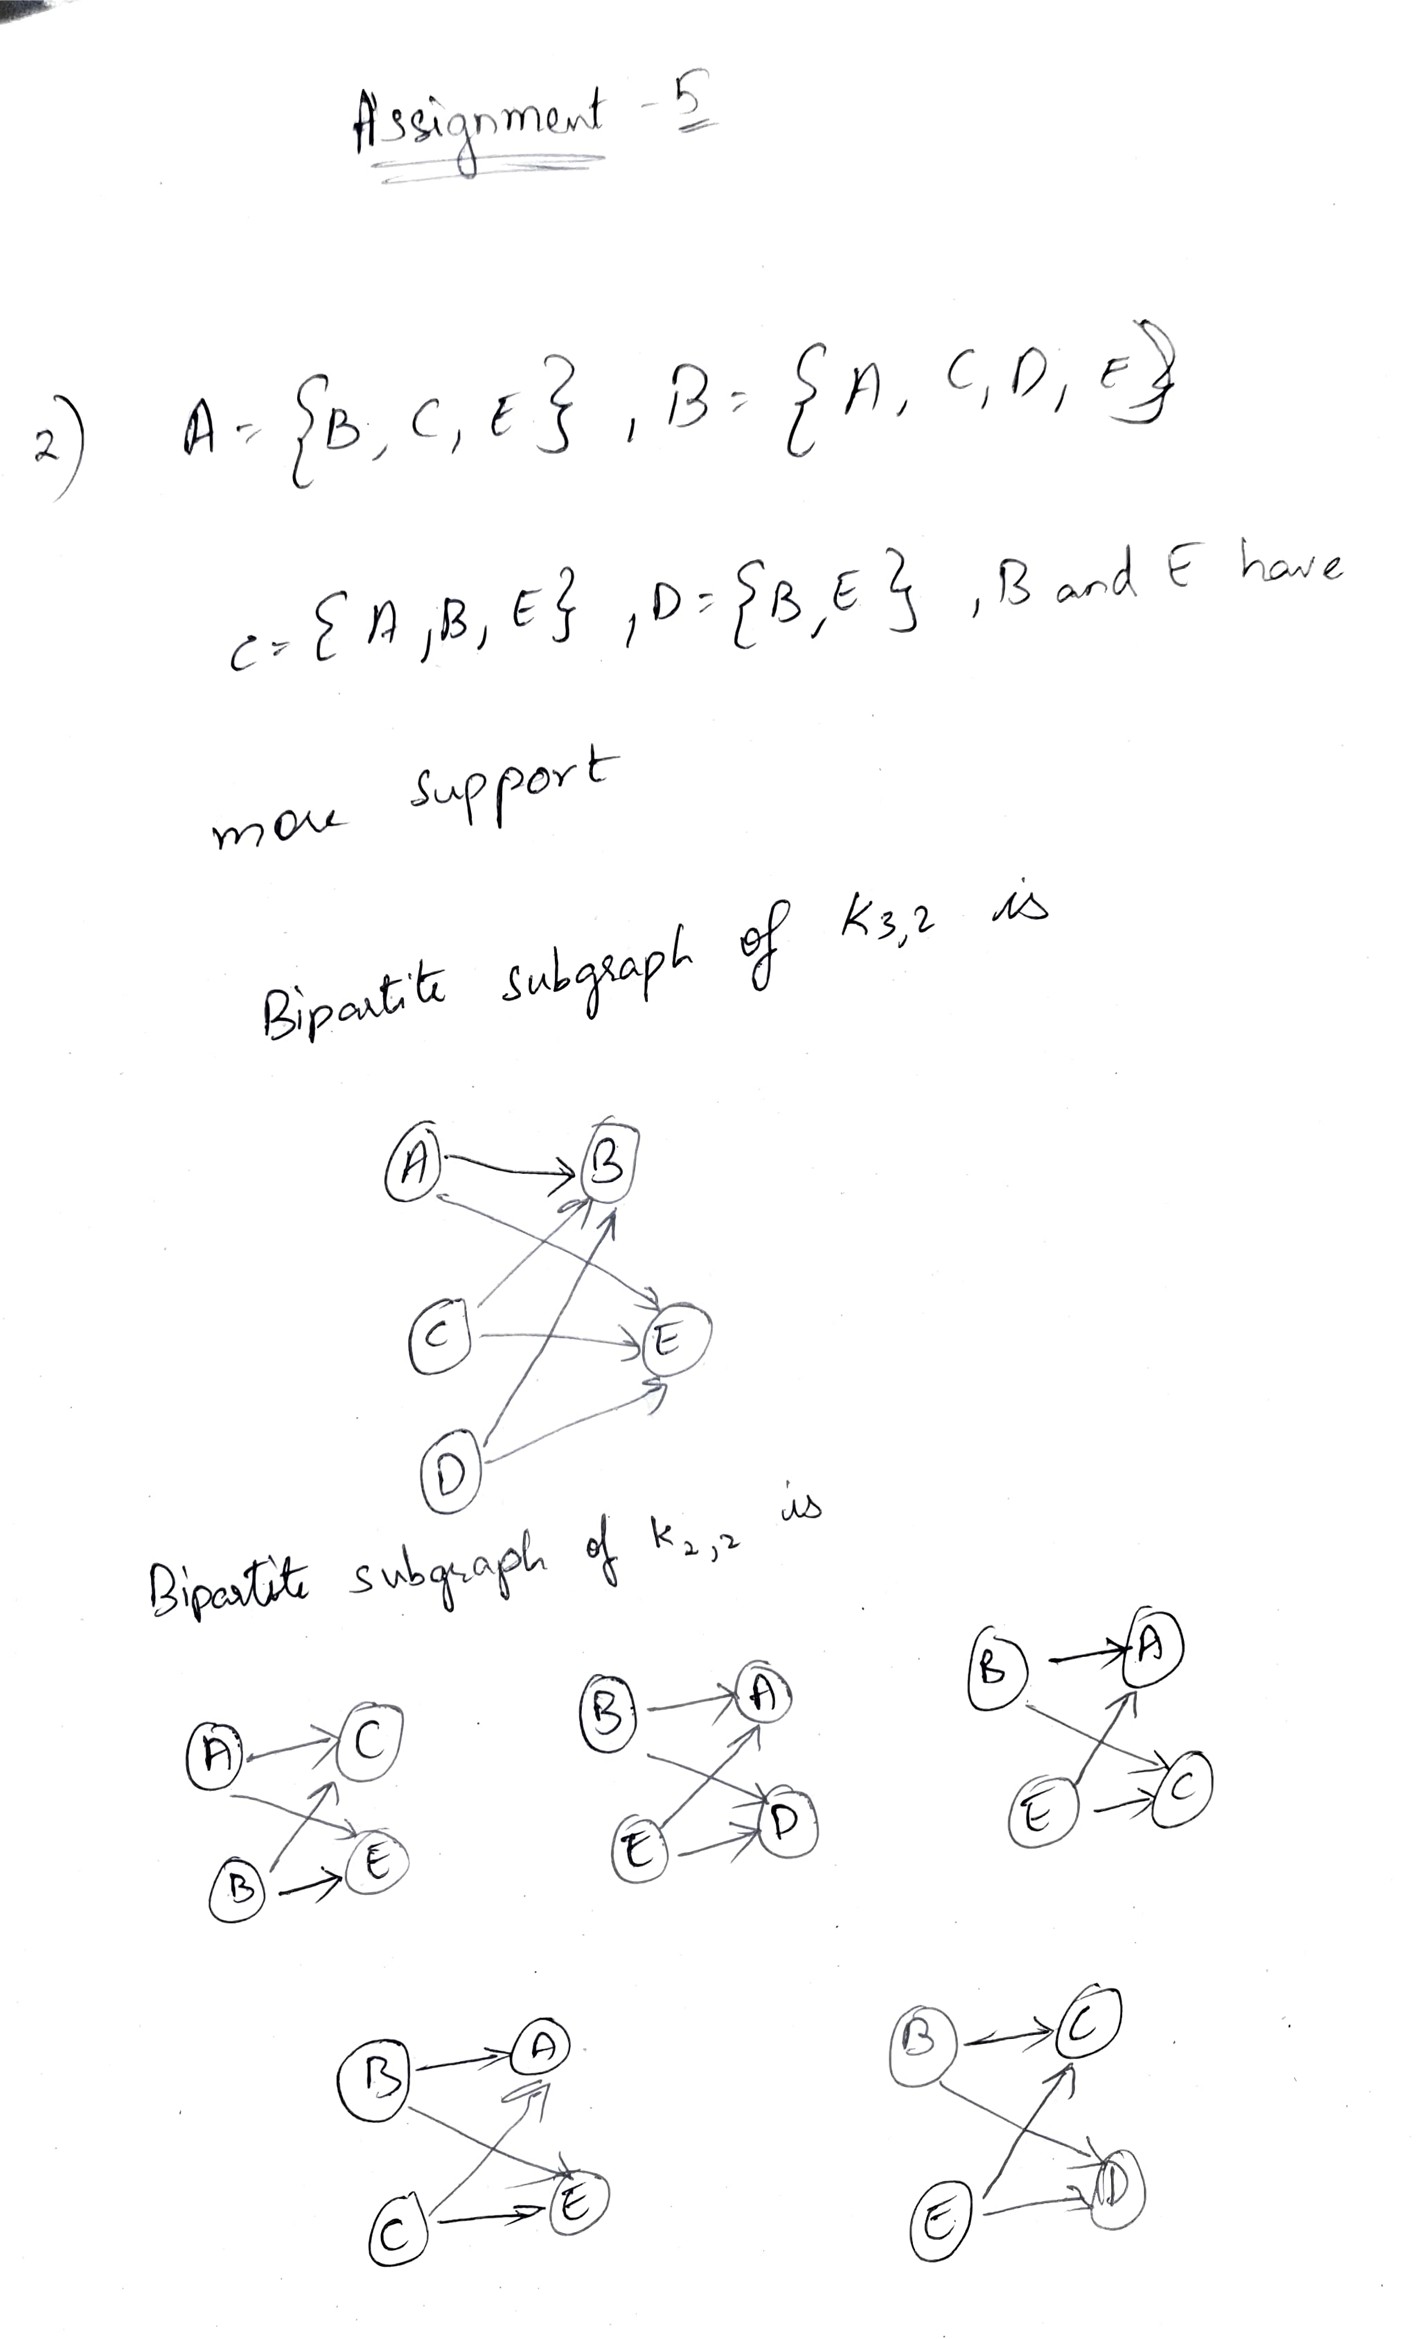 Assignment - 5
2) A = {B, C, E} , B = {A, C, D, E}
C = {A, B, E} , D = {B, E} , B and E have
more support
Bipartite subgraph of K3,2 is
A B
C E
D
Bipartite subgraph of K2,2 is
A C
B E
B A
E D
B A
E C
B A
C E
B C
E D